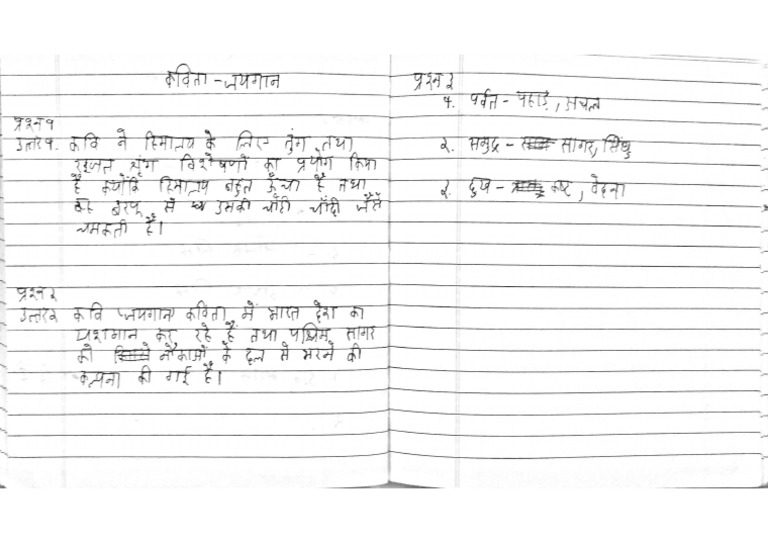 कविता - जयगान
प्रश्न १
उत्तर १. कवि ने हिमालय के लिए तुंग तथा
रजत श्रृंग विशेषणों का प्रयोग किया
है क्योंकि हिमालय बहुत ऊँचा है तथा
बरफ से उसकी चोटी चाँदी जैसे
चमकती है।
प्रश्न २
उत्तर२ कवि 'जयगान' कविता में भारत देश का
यशगान कर रहे हैं तथा पश्चिम सागर
को नौकाओं के दल से भरने की
कल्पना की गई है।
प्रश्न ३
१. पर्वत - पहाड़, अचल
२. समुद्र - सागर, सिंधु
३. दुख - कष्ट, वेदना